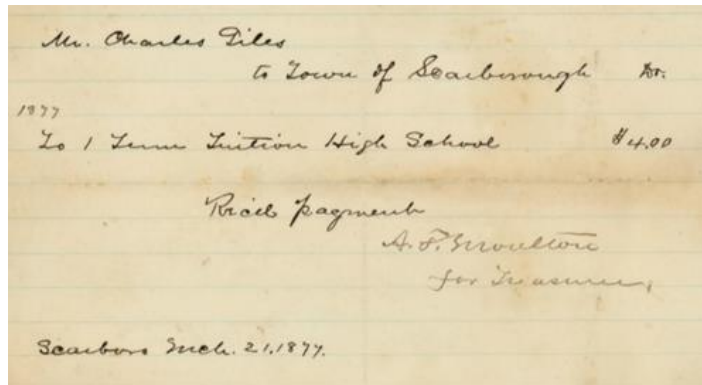 Mr. Charles Giles
to Town of Scarborough Dr.
1877
To 1 Term Tuition High School $4.00
Rec'd payment
A. F. Moulton
for Treasurer
Scarboro Mch. 21, 1877.